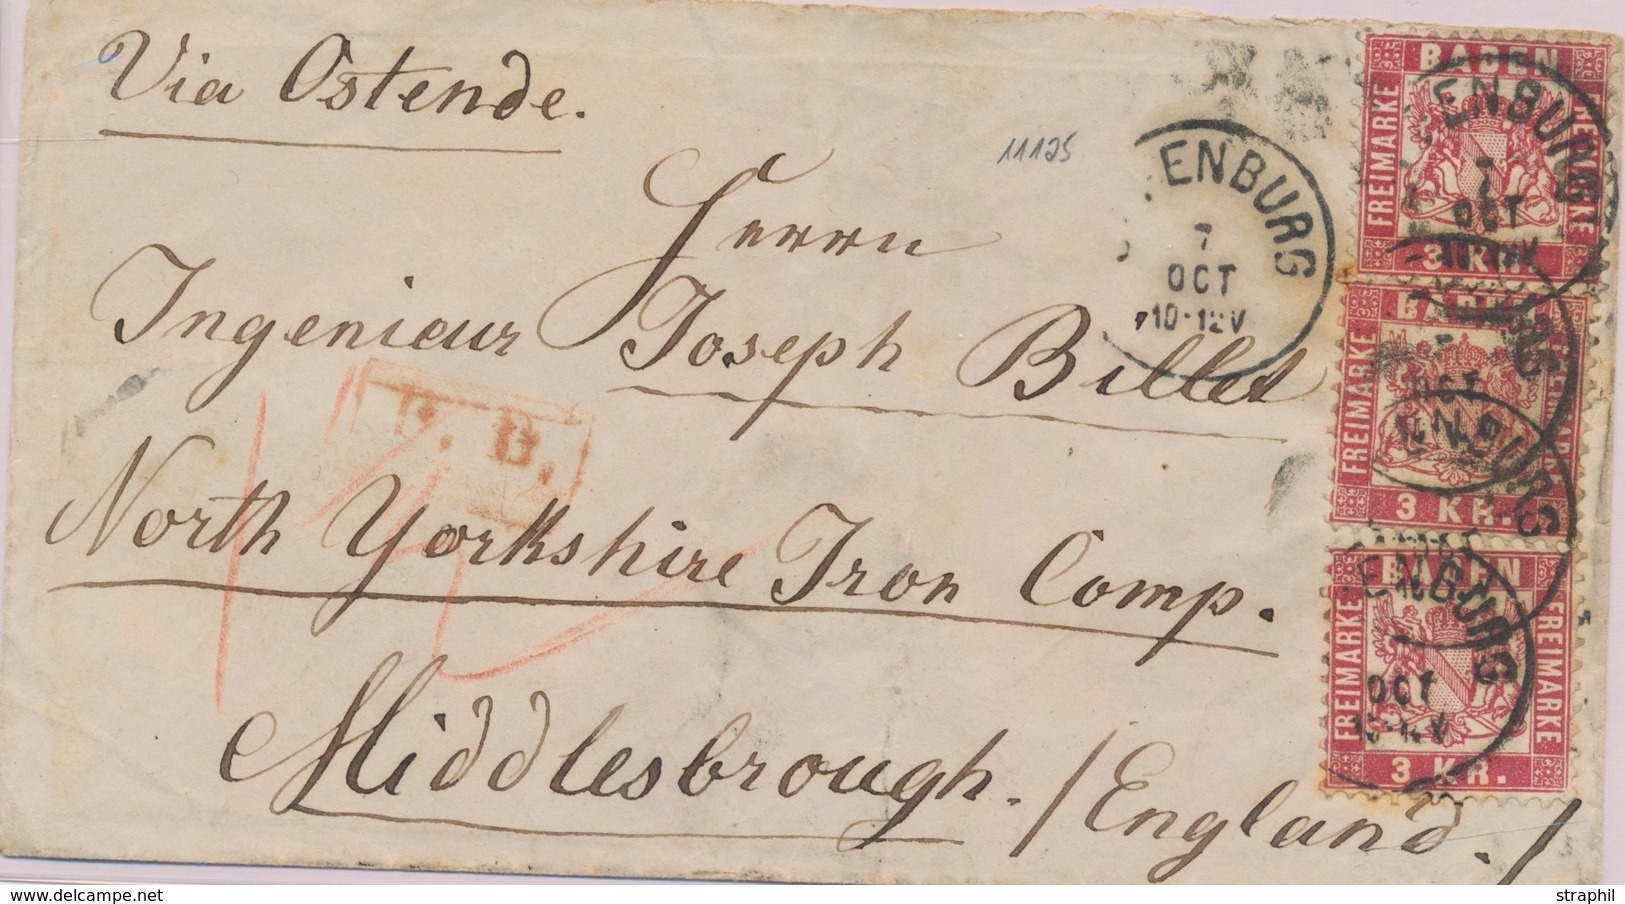 Via Ostende.
11125
Herrn
Ingenieur Joseph Billet
North Yorkshire Iron Comp.
Middlesbrough. / England. /
P. D.
ENBURG
7
OCT
10-12V
BADEN
FREIMARKE
FREIMARKE
3 KR.
ENBURG
7
OCT
BADEN
FREIMARKE
FREIMARKE
3 KR.
OCT
ENBURG
BADEN
FREIMARKE
FREIMARKE
3 KR.
ENBURG
OCT
10-12V
© straphil